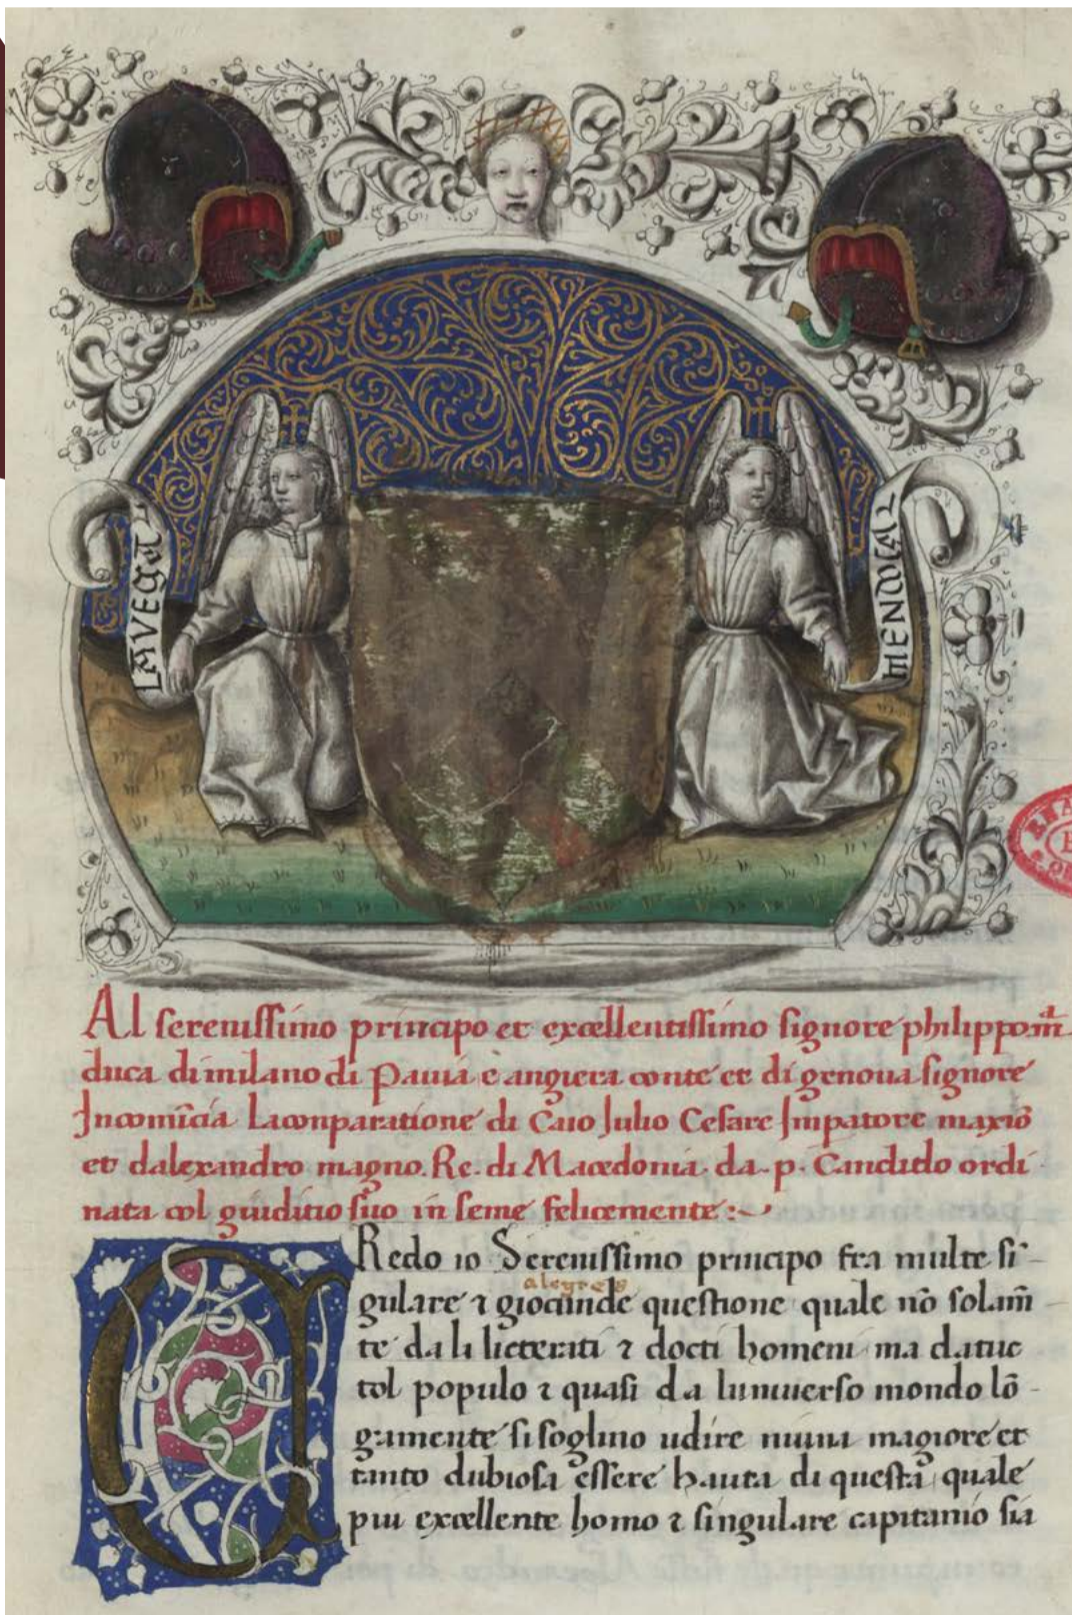 LAVEGA
MENDOÇA
Al serenissimo principo et excellentissimo signore philippo m̄
duca di milano di Pauia e angiera conte et di genoua signore
Incomīcia La conparatione di Caio Julio Cesare Impatore maxiō
et dalexandro magno. Re. di Macedonia. da. p. Candido ordi
nata col giuditio suo in seme felicemente :~
Redo io Serenissimo principo fra multe si-
alegres
gulare ⁊ giocunde questione quale nō solam̄
te da li litterati ⁊ docti homeni ma da tuc
tol populo ⁊ quasi da luniuerso mondo lō-
gamente si soglino udire niuna magiore et
tanto dubiosa essere hauta di questa quale
piu excellente homo ⁊ singulare capitanio sia